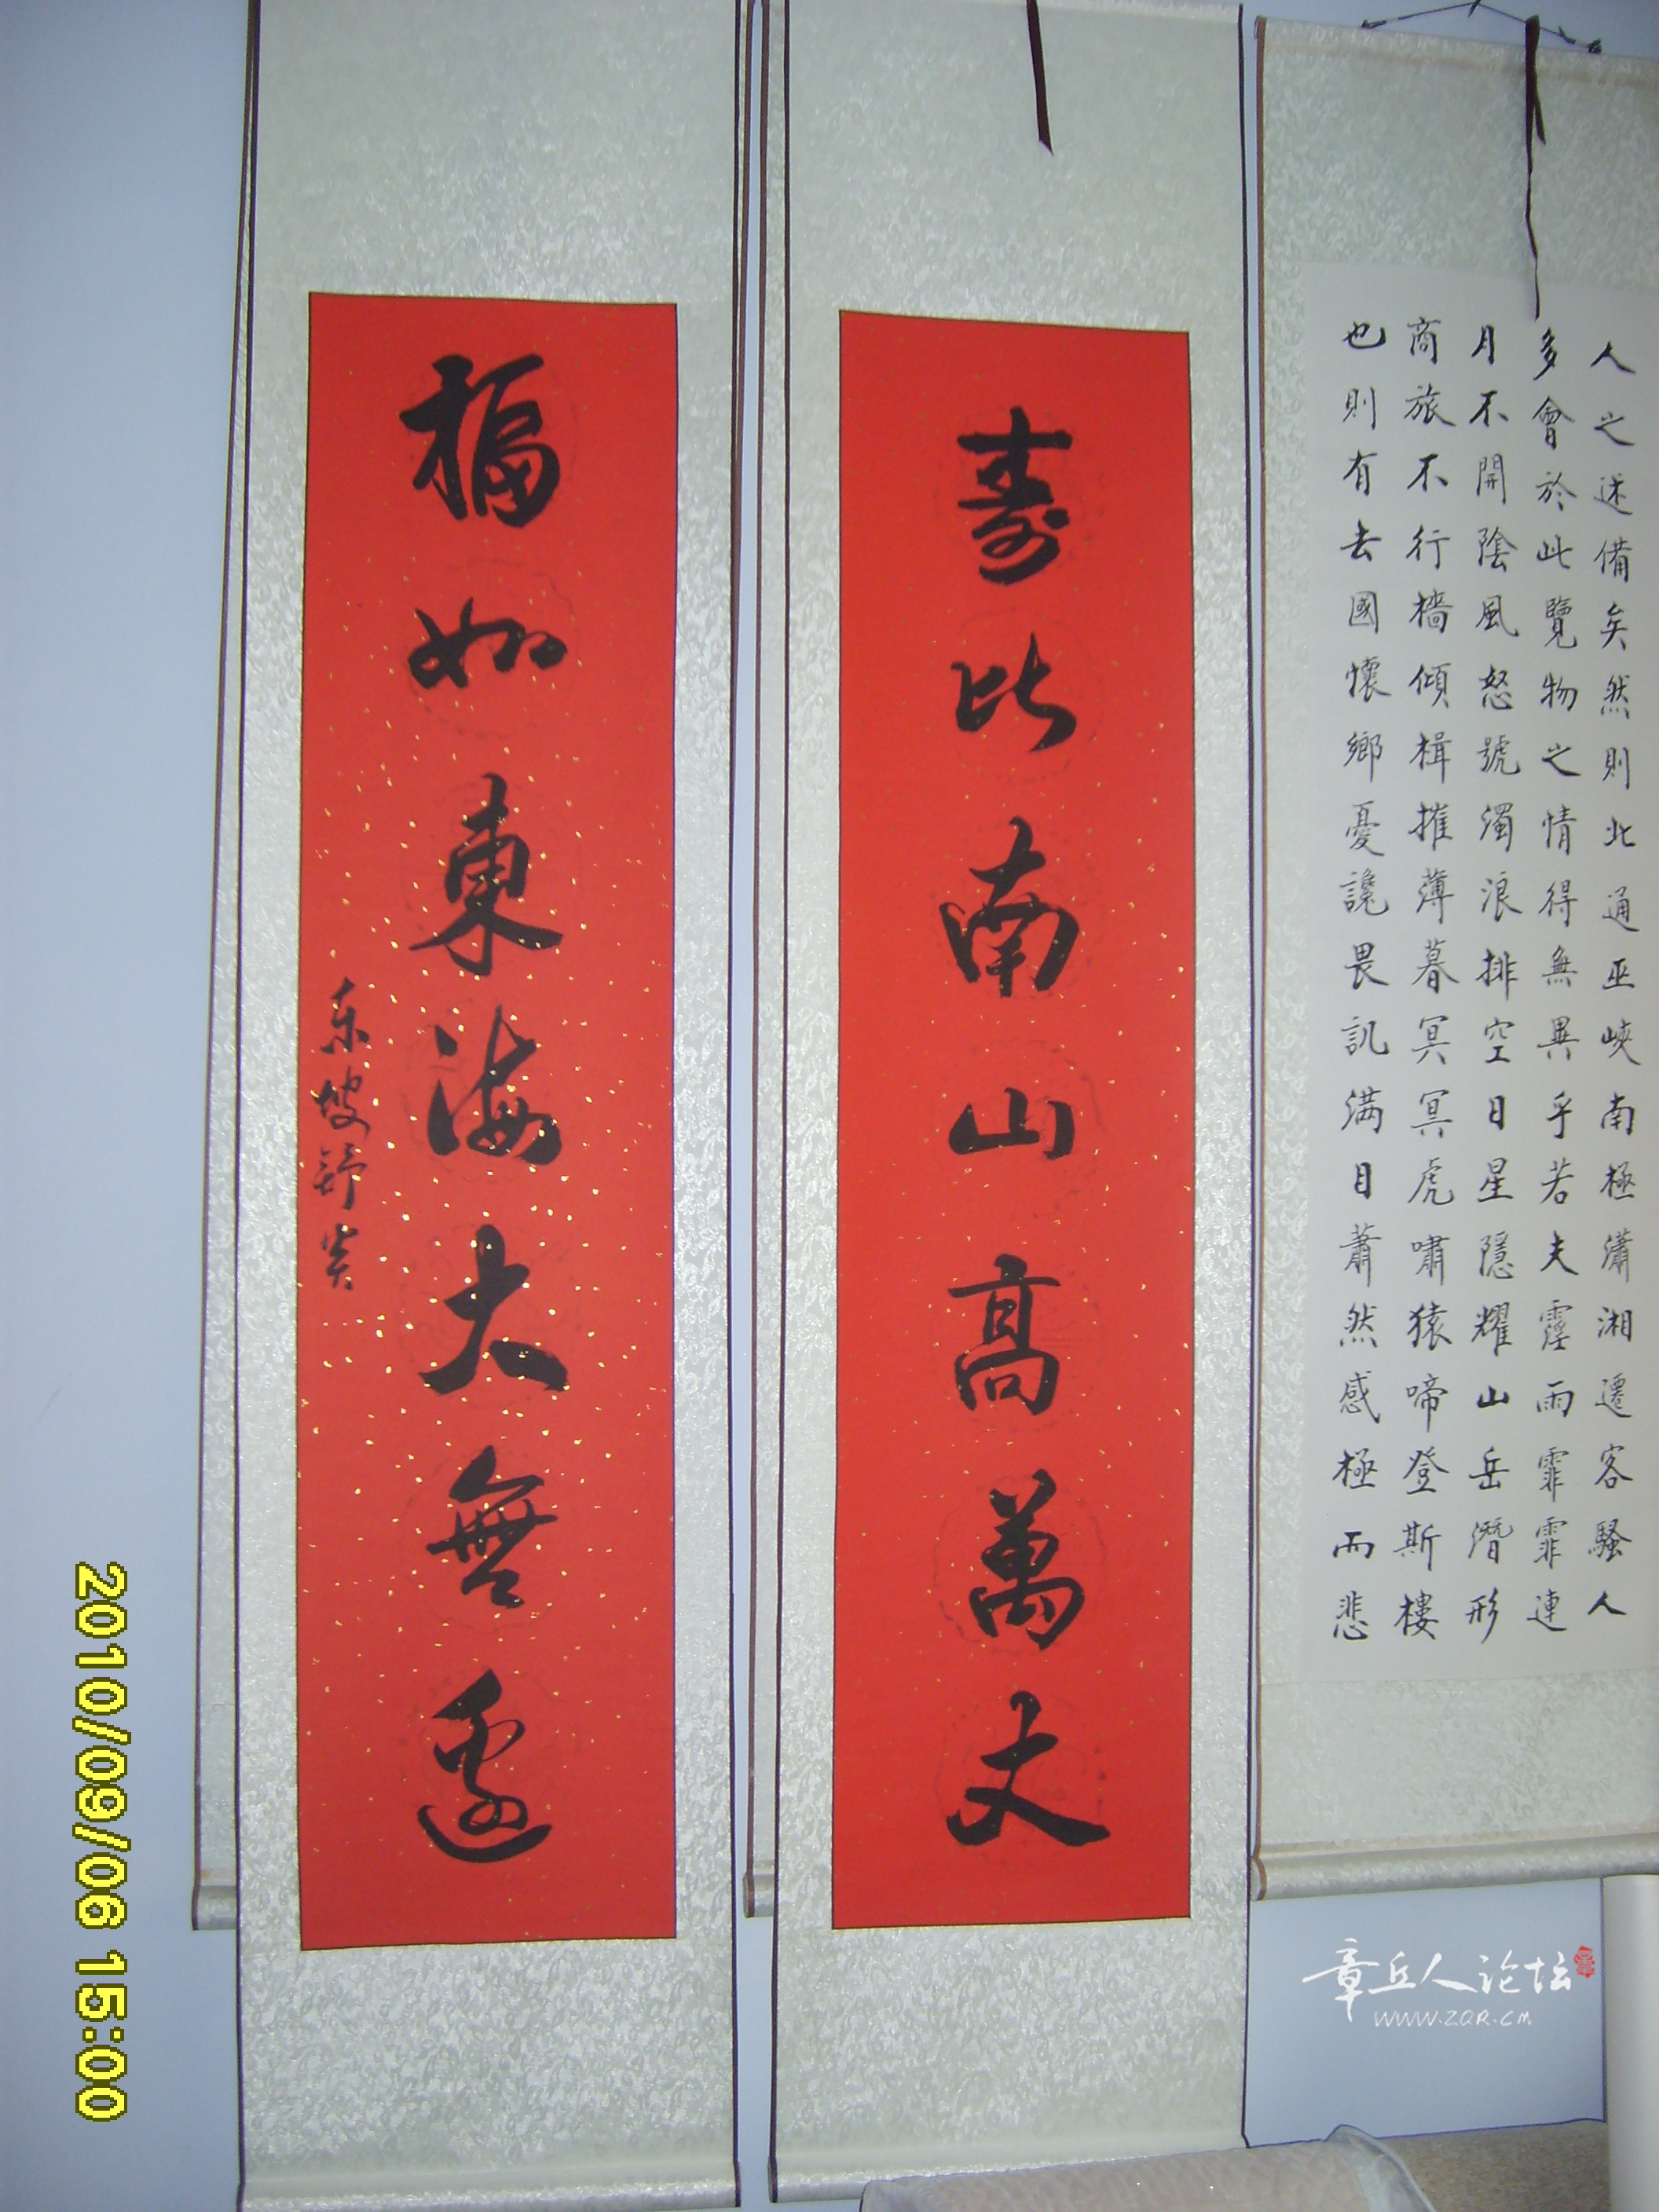 人之述備矣然則北通巫峽南極瀟湘遷客騷人
多會於此覽物之情得無異乎若夫霪雨霏霏連
月不開陰風怒號濁浪排空日星隱耀山岳潛形
商旅不行檣傾楫摧薄暮冥冥虎嘯猿啼登斯樓
也則有去國懷鄉憂讒畏訊满目蕭然感極而悲
壽比南山高萬丈
福如東海大無邊
东坡
章丘人论坛
WWW.ZQR.CM
2010/09/06 15:00